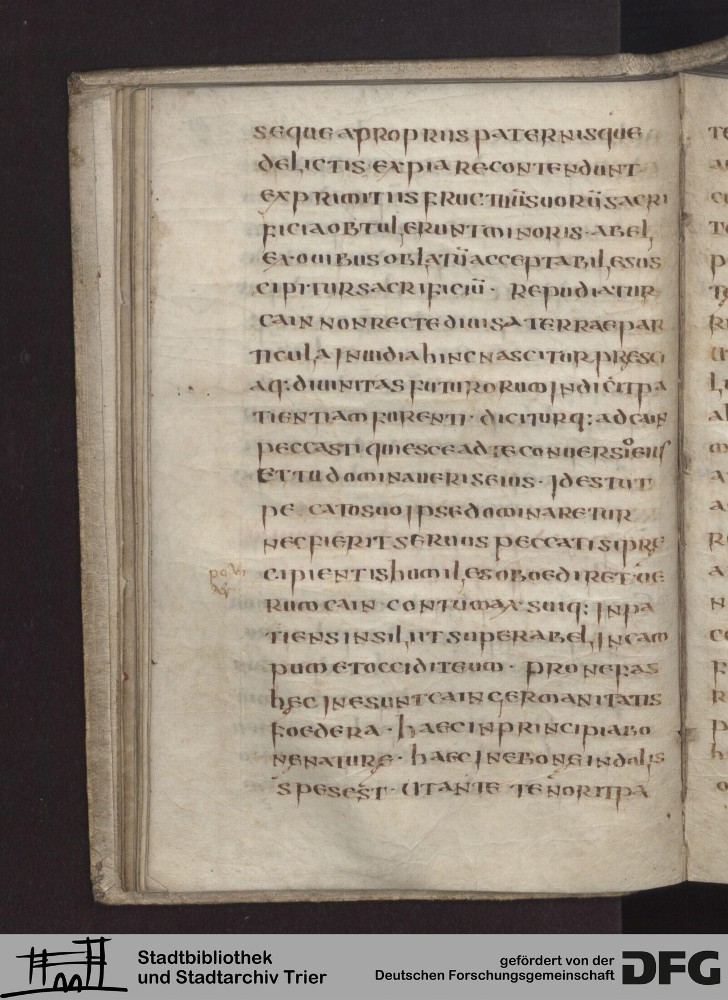 seque apropriis paternisque
delictis expiare contendunt
exprimitiis fructuū suorū sacri
ficia obtulerunt minoris · abel
ex ouibus oblatū acceptabile sus
cipitur sacrificiū · repudiatur
cain non recte diuisa terrae par
ticula inuidia hinc nascitur presci
aq: diuinitas futurorum indicit pa
tientiam furenti · dicitur q: ad cain
peccasti quiesce ad te conuersio eius
et tu dominaueris eius · id est ut
pe cato suo ipse dominaretur
nec fierit seruus peccati si pre
cipientis humiles oboediret ue
rum cain contumax suiq: inpa
tiens insiluit super abel in cam
pum et occidit eum · pro nefas
hec ine sunt cain germanitatis
foedera · haec in principia bo
ne nature · haec ine bone indolis
spes est · ut ante tenorit pa
Stadtbibliothek
und Stadtarchiv Trier
gefördert von der
Deutschen Forschungsgemeinschaft
DFG